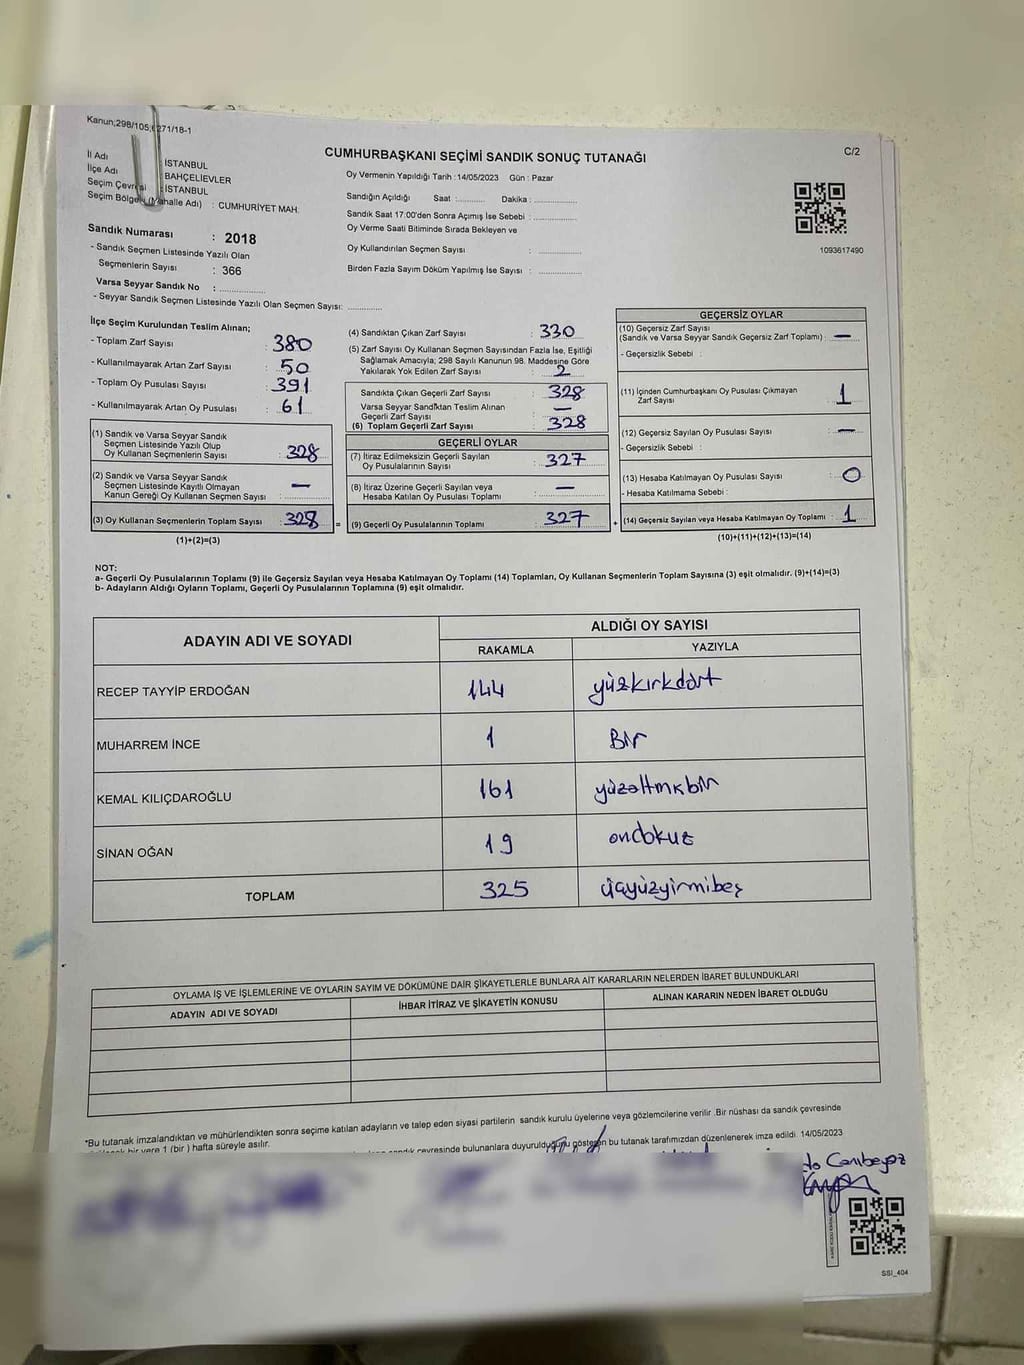 Kanun;298/105,6271/18-1
CUMHURBAŞKANI SEÇİMİ SANDIK SONUÇ TUTANAĞI
C/2
İl Adı : İSTANBUL
İlçe Adı : BAHÇELİEVLER
Seçim Çevresi : İSTANBUL
Seçim Bölgesi (Mahalle Adı) : CUMHURİYET MAH.
Sandık Numarası : 2018
- Sandık Seçmen Listesinde Yazılı Olan
Seçmenlerin Sayısı : 366
Varsa Seyyar Sandık No : ............
- Seyyar Sandık Seçmen Listesinde Yazılı Olan Seçmen Sayısı: ............
Oy Vermenin Yapıldığı Tarih :14/05/2023 Gün : Pazar
Sandığın Açıldığı Saat :........... Dakika :................
Sandık Saat 17:00'den Sonra Açımış İse Sebebi : ................
Oy Verme Saati Bitiminde Sırada Bekleyen ve
Oy Kullandırılan Seçmen Sayısı : ................
Birden Fazla Sayım Döküm Yapılmış İse Sayısı : ................
1093617490
İlçe Seçim Kurulundan Teslim Alınan;
- Toplam Zarf Sayısı : 380
- Kullanılmayarak Artan Zarf Sayısı : 50
- Toplam Oy Pusulası Sayısı : 391
- Kullanılmayarak Artan Oy Pusulası : 61
(1) Sandık ve Varsa Seyyar Sandık
Seçmen Listesinde Yazılı Olup
Oy Kullanan Seçmenlerin Sayısı : 328
(2) Sandık ve Varsa Seyyar Sandık
Seçmen Listesinde Kayıtlı Olmayan
Kanun Gereği Oy Kullanan Seçmen Sayısı : —
(3) Oy Kullanan Seçmenlerin Toplam Sayısı : 328
(1)+(2)=(3)
(4) Sandıktan Çıkan Zarf Sayısı : 330
(5) Zarf Sayısı Oy Kullanan Seçmen Sayısından Fazla İse, Eşitliği
Sağlamak Amacıyla; 298 Sayılı Kanunun 98. Maddesine Göre
Yakılarak Yok Edilen Zarf Sayısı : 2
Sandıkta Çıkan Geçerli Zarf Sayısı : 328
Varsa Seyyar Sandıktan Teslim Alınan
Geçerli Zarf Sayısı : —
(6) Toplam Geçerli Zarf Sayısı : 328
GEÇERLİ OYLAR
(7) İtiraz Edilmeksizin Geçerli Sayılan
Oy Pusulalarının Sayısı : 327
(8) İtiraz Üzerine Geçerli Sayılan veya
Hesaba Katılan Oy Pusulası Toplamı : —
= (9) Geçerli Oy Pusulalarının Toplamı : 327
GEÇERSİZ OYLAR
(10) Geçersiz Zarf Sayısı
(Sandık ve Varsa Seyyar Sandık Geçersiz Zarf Toplamı) : —
- Geçersizlik Sebebi :
(11) İçinden Cumhurbaşkanı Oy Pusulası Çıkmayan
Zarf Sayısı : 1
(12) Geçersiz Sayılan Oy Pusulası Sayısı : —
- Geçersizlik Sebebi :
(13) Hesaba Katılmayan Oy Pusulası Sayısı : 0
- Hesaba Katılmama Sebebi :
+ (14) Geçersiz Sayılan veya Hesaba Katılmayan Oy Toplamı : 1
(10)+(11)+(12)+(13)=(14)
NOT:
a- Geçerli Oy Pusulalarının Toplamı (9) ile Geçersiz Sayılan veya Hesaba Katılmayan Oy Toplamı (14) Toplamları, Oy Kullanan Seçmenlerin Toplam Sayısına (3) eşit olmalıdır. (9)+(14)=(3)
b- Adayların Aldığı Oyların Toplamı, Geçerli Oy Pusulalarının Toplamına (9) eşit olmalıdır.
ADAYIN ADI VE SOYADI
ALDIĞI OY SAYISI
RAKAMLA YAZIYLA
RECEP TAYYİP ERDOĞAN 144 yüzkırkdört
MUHARREM İNCE 1 Bir
KEMAL KILIÇDAROĞLU 161 yüzaltmışbir
SİNAN OĞAN 19 ondokuz
TOPLAM 325 üçyüzyirmibeş
OYLAMA İŞ VE İŞLEMLERİNE VE OYLARIN SAYIM VE DÖKÜMÜNE DAİR ŞİKAYETLERLE BUNLARA AİT KARARLARIN NELERDEN İBARET BULUNDUKLARI
ADAYIN ADI VE SOYADI
İHBAR İTİRAZ VE ŞİKAYETİN KONUSU
ALINAN KARARIN NEDEN İBARET OLDUĞU
*Bu tutanak imzalandıktan ve mühürlendikten sonra seçime katılan adayların ve talep eden siyasi partilerin sandık kurulu üyelerine veya gözlemcilerine verilir .Bir nüshası da sandık çevresinde
bir yere 1 (bir ) hafta süreyle asılır.
sandık çevresinde bulunanlara duyurulduğunu gösteren bu tutanak tarafımızdan düzenlenerek imza edildi. 14/05/2023
Canbeyaz
SSI_404